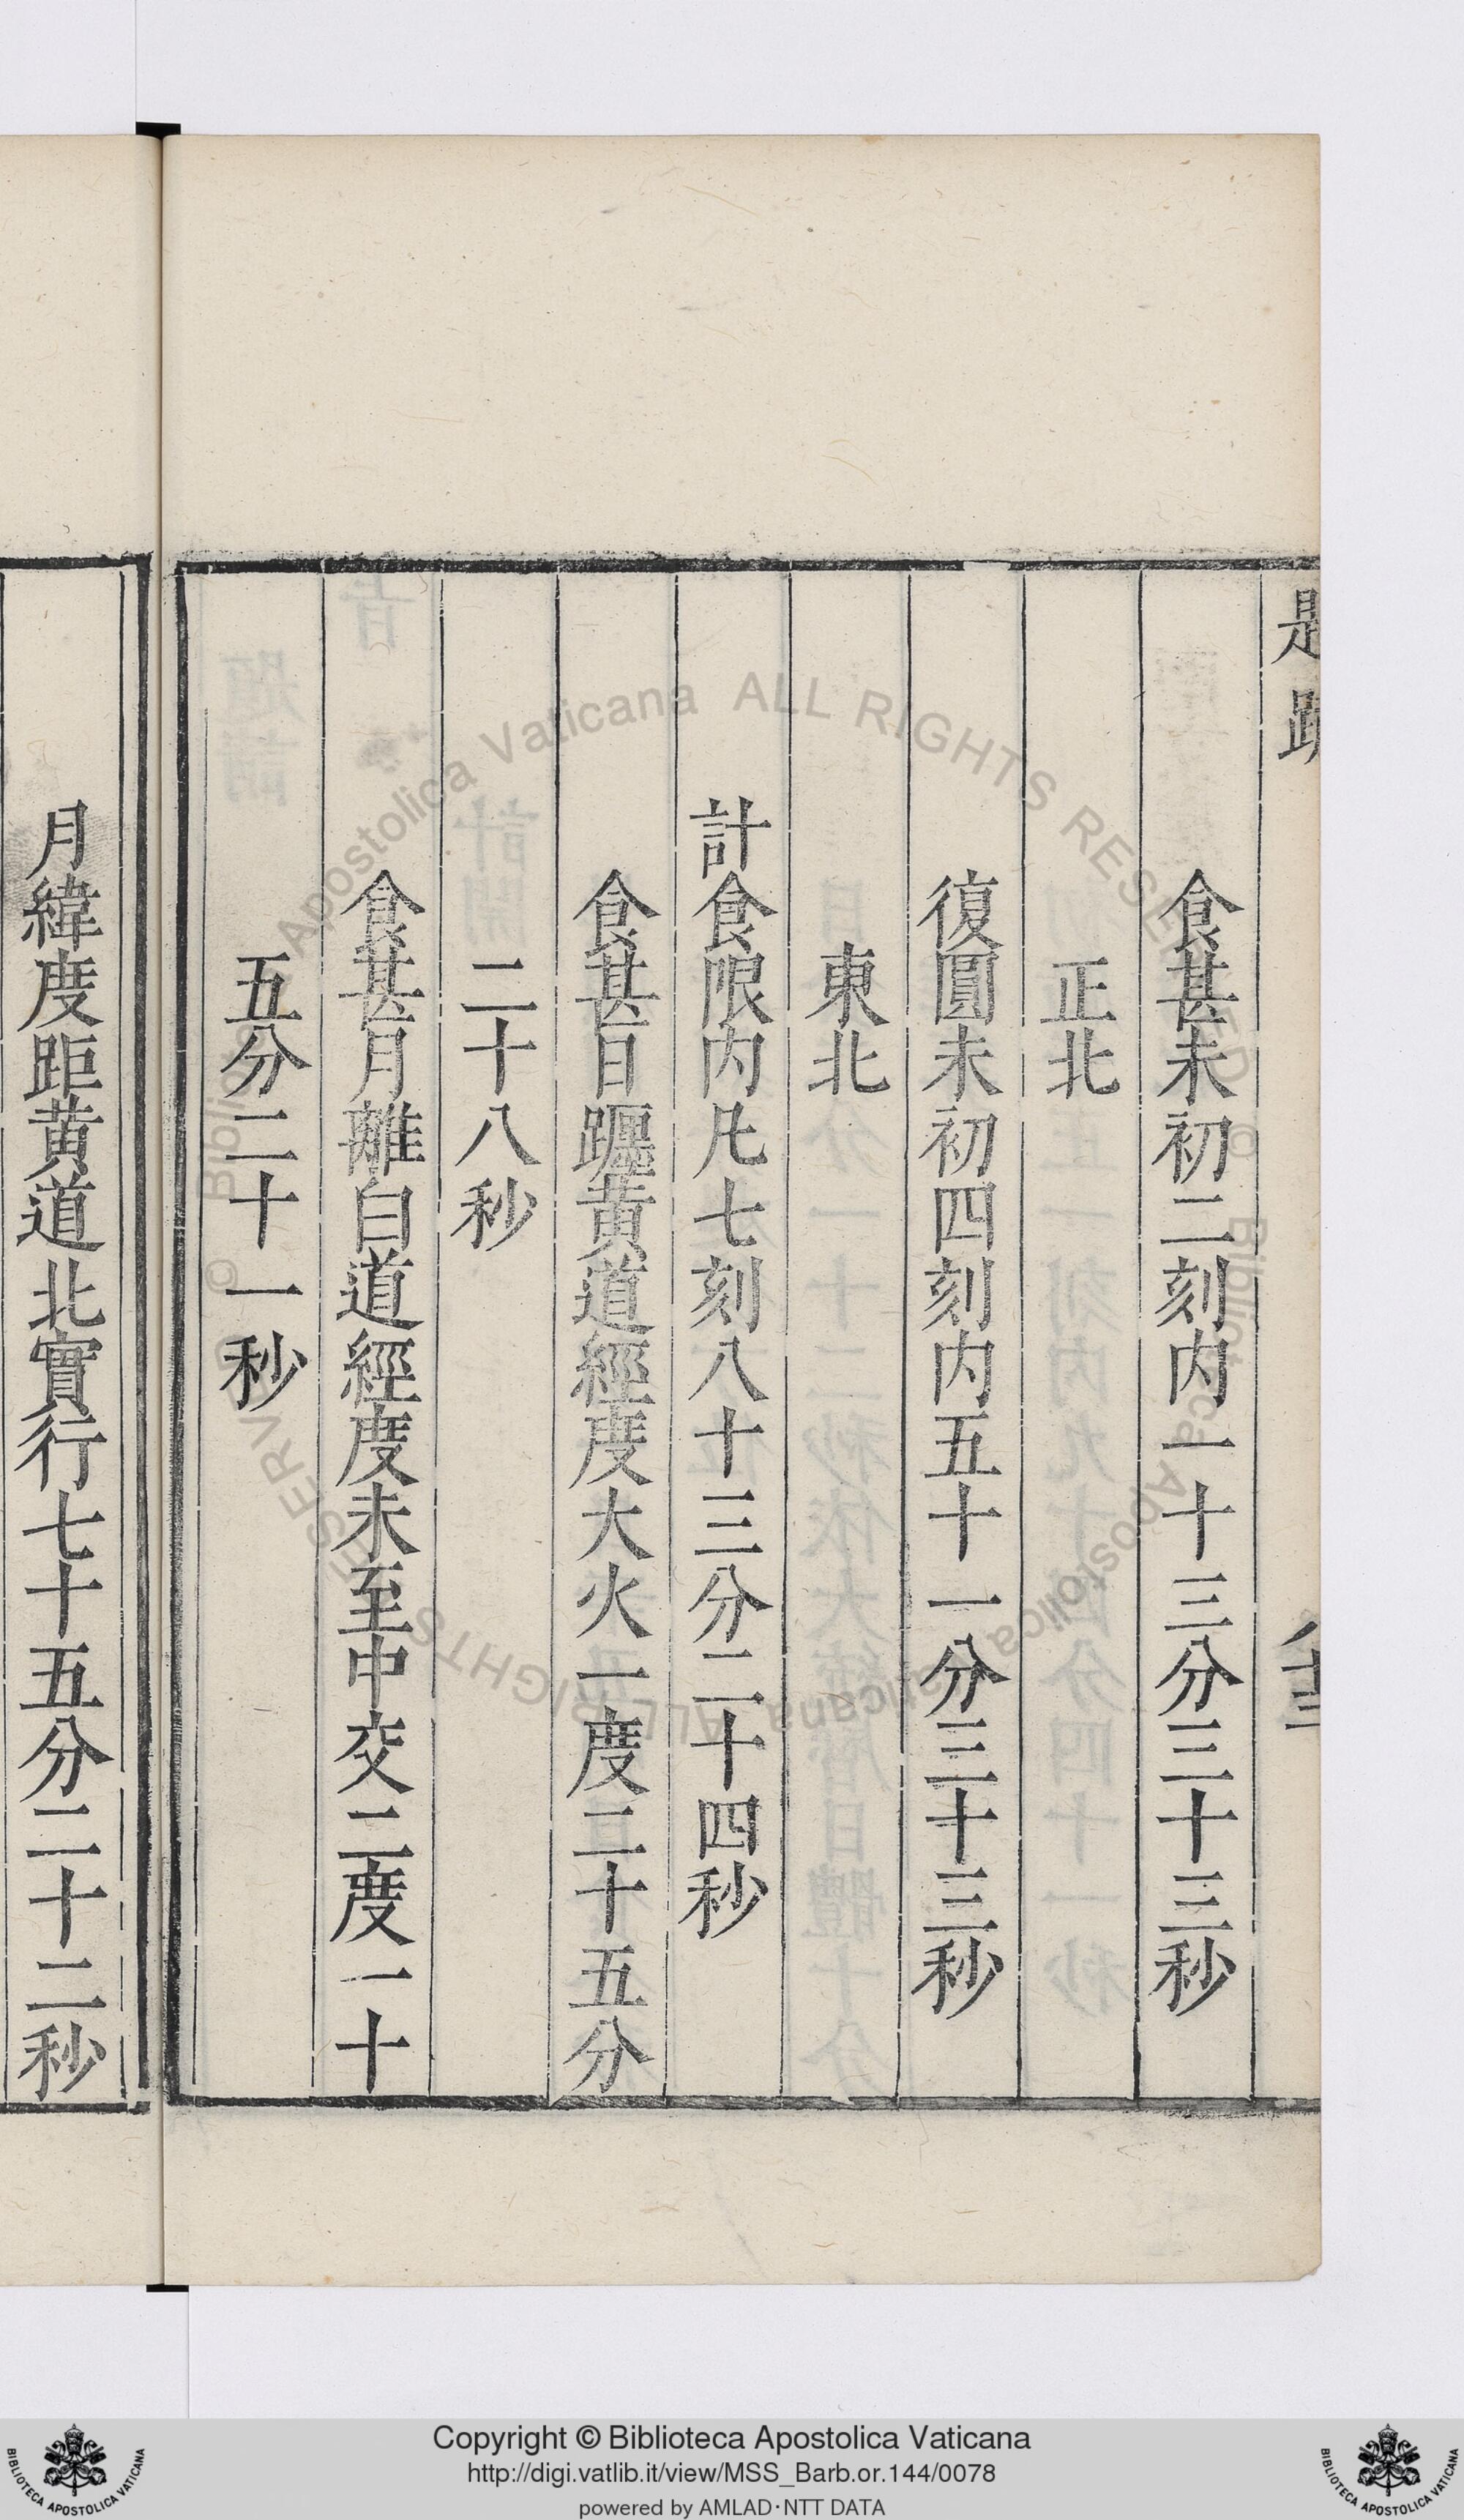 食甚未初二刻内一十三分三十三秒
正北
復圓未初四刻内五十一分三十三秒
東北
計食限内凡七刻八十三分二十四秒
食甚日躔黄道經度大火一度二十五分
二十八秒
食甚月離白道經度未至中交二度一十
五分二十一秒
月緯度距黄道北實行七十五分二十二秒
Copyright © Biblioteca Apostolica Vaticana
http://digi.vatlib.it/view/MSS_Barb.or.144/0078
powered by AMLAD·NTT DATA
BIBLIOTECA APOSTOLICA VATICANA
BIBLIOTECA APOSTOLICA VATICANA